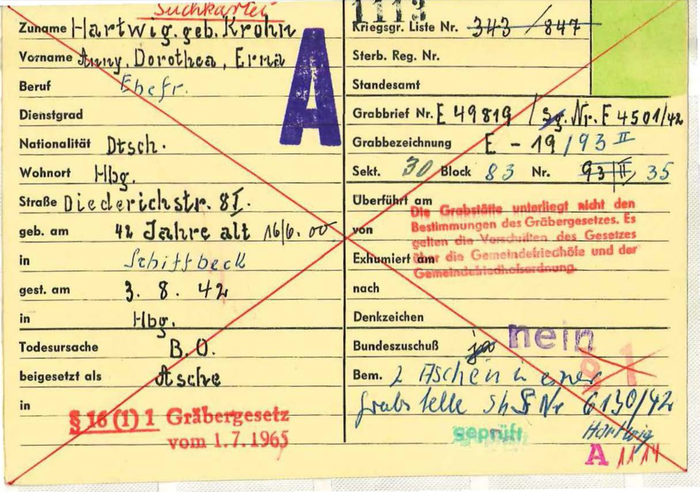 Suchkartei
Zuname Hartwig, geb. Krohn
Vorname Anny, Dorothea, Erna
Beruf Ehefr.
Dienstgrad
Nationalität Dtsch.
Wohnort Hbg.
Straße Diederichstr. 8I.
geb. am 42 Jahre alt 16/6. 00
in Schiffbeck
gest. am 3. 8. 42
in Hbg.
Todesursache B.O.
beigesetzt als Asche
in
§ 16 (1) 1 Gräbergesetz
vom 1.7.1965
A
1113
Kriegsgr. Liste Nr. 343 / 847
Sterb. Reg. Nr.
Standesamt
Grabbrief Nr. E 49819 / Sg. Nr. F 4501/42
Grabbezeichnung E - 19/93 II
Sekt. 30 Block 83 Nr. 93 II 35
Überführt am
von
Exhumiert am
nach
Die Grabstätte unterliegt nicht den
Bestimmungen des Gräbergesetzes. Es
gelten die Vorschriften des Gesetzes
über die Gemeindefriedhöfe und der
Gemeindefriedhofsordnung.
Denkzeichen
Bundeszuschuß ja nein
Bem. 2 Aschen in einer
Grabstelle Nr 6130/42
Hartwig
geprüft
A 1114